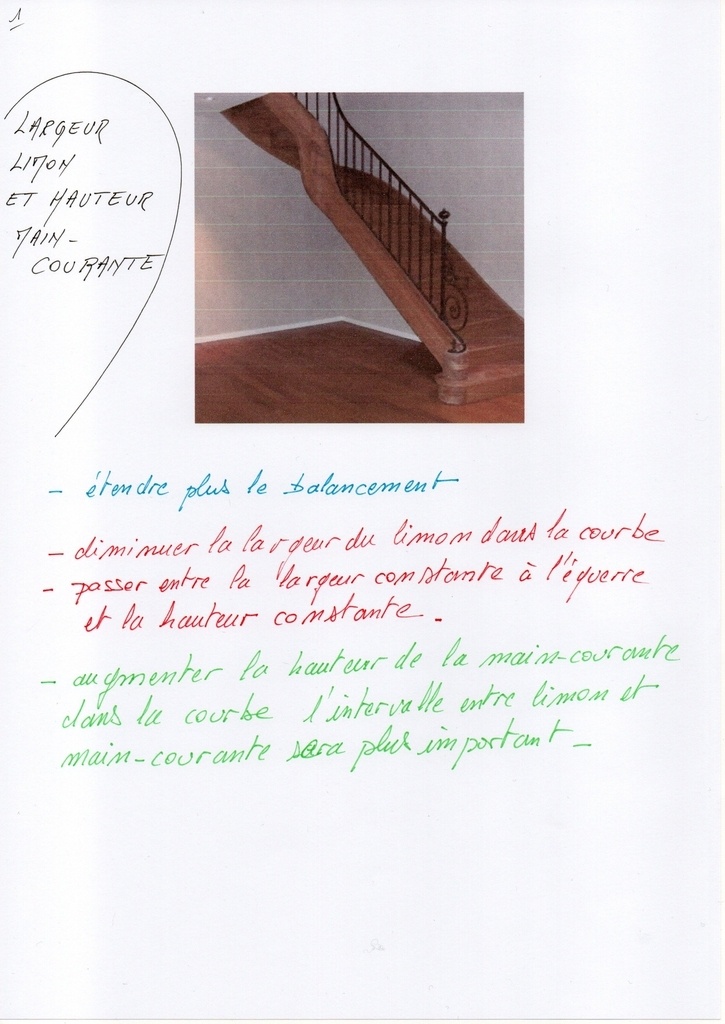 1
LARGEUR
LIMON
ET HAUTEUR
MAIN-
COURANTE
- étendre plus le balancement
- diminuer la largeur du limon dans la courbe
- passer entre la largeur constante à l'équerre
et la hauteur constante.
- augmenter la hauteur de la main-courante
dans la courbe l'intervalle entre limon et
main-courante sera plus important -